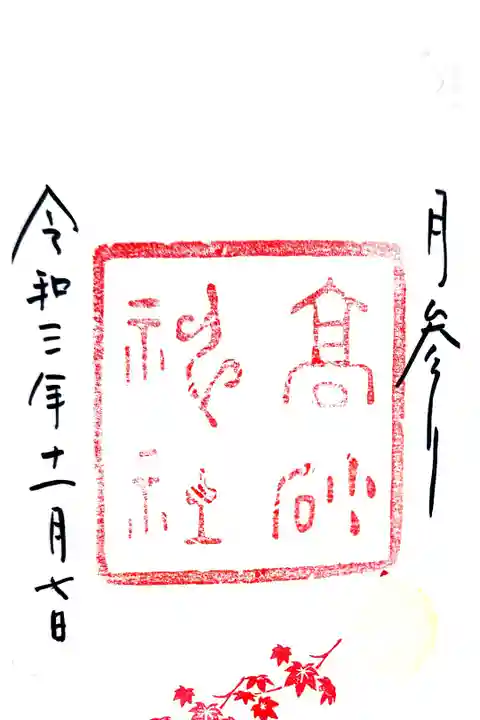 月参り
髙砂
神社
令和三年十一月七日